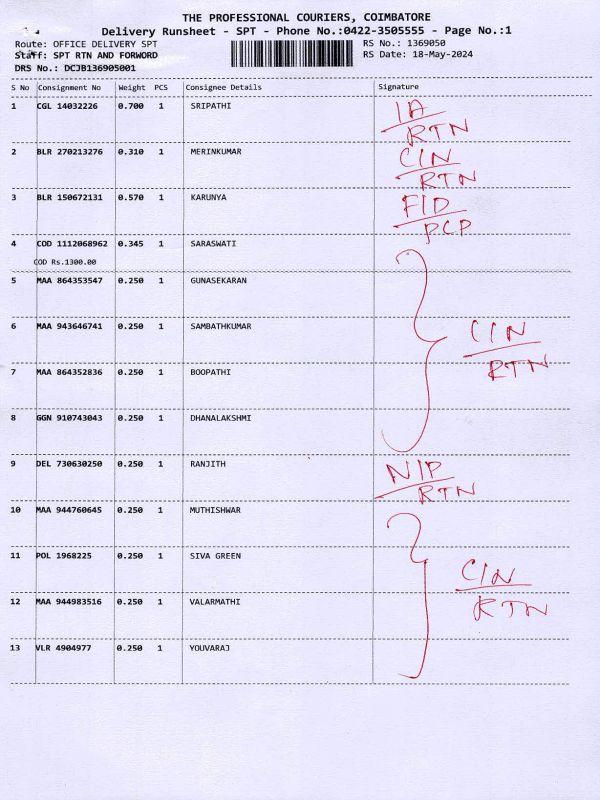 THE PROFESSIONAL COURIERS, COIMBATORE
Delivery Runsheet - SPT - Phone No.:0422-3505555 - Page No.:1
Route: OFFICE DELIVERY SPT RS No.: 1369050
Staff: SPT RTN AND FORWORD RS Date: 18-May-2024
DRS No.: DCJB136905001
S No Consignment No Weight PCS Consignee Details Signature
1 CGL 14032226 0.700 1 SRIPATHI IA
RTN
2 BLR 270213276 0.310 1 MERINKUMAR CIN
RTN
3 BLR 150672131 0.570 1 KARUNYA FID
PCP
4 COD 1112068962 0.345 1 SARASWATI
COD Rs.1300.00
5 MAA 864353547 0.250 1 GUNASEKARAN
6 MAA 943646741 0.250 1 SAMBATHKUMAR CIN
7 MAA 864352836 0.250 1 BOOPATHI RTN
8 GGN 910743043 0.250 1 DHANALAKSHMI
9 DEL 730630250 0.250 1 RANJITH NIP
RTN
10 MAA 944760645 0.250 1 MUTHISHWAR
11 POL 1968225 0.250 1 SIVA GREEN CIN
12 MAA 944983516 0.250 1 VALARMATHI RTN
13 VLR 4904977 0.250 1 YOUVARAJ